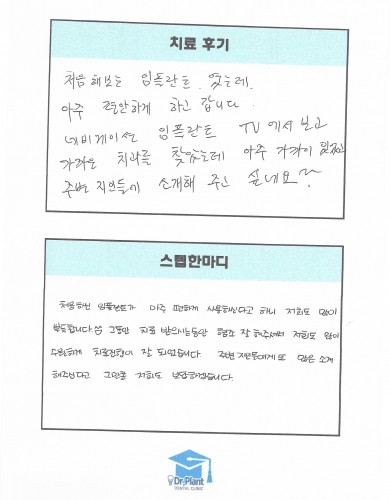 치료 후기
처음 해보는 임플란트 였는데
아주 편안하게 하고 갑니다.
네비게이션 임플란트 TV에서 보고
가까운 치과를 찾았는데 아주 가까이 있었고
주변 지인들에 소개해 주고 싶네요~
스텝한마디
처음하신 임플란트가 아주 편하게 사용하신다고 하니 저희도 많이
뿌듯합니다 그동안 치료 받으시는동안 협조 잘 해주셔서 저희도 많이
수월하게 치료진행이 잘 되었습니다. 주변 지인들에게도 많은 소개
해주신다고 그만큼 저희도 보답하겠습니다.
Dr.Plant
DENTAL CLINIC